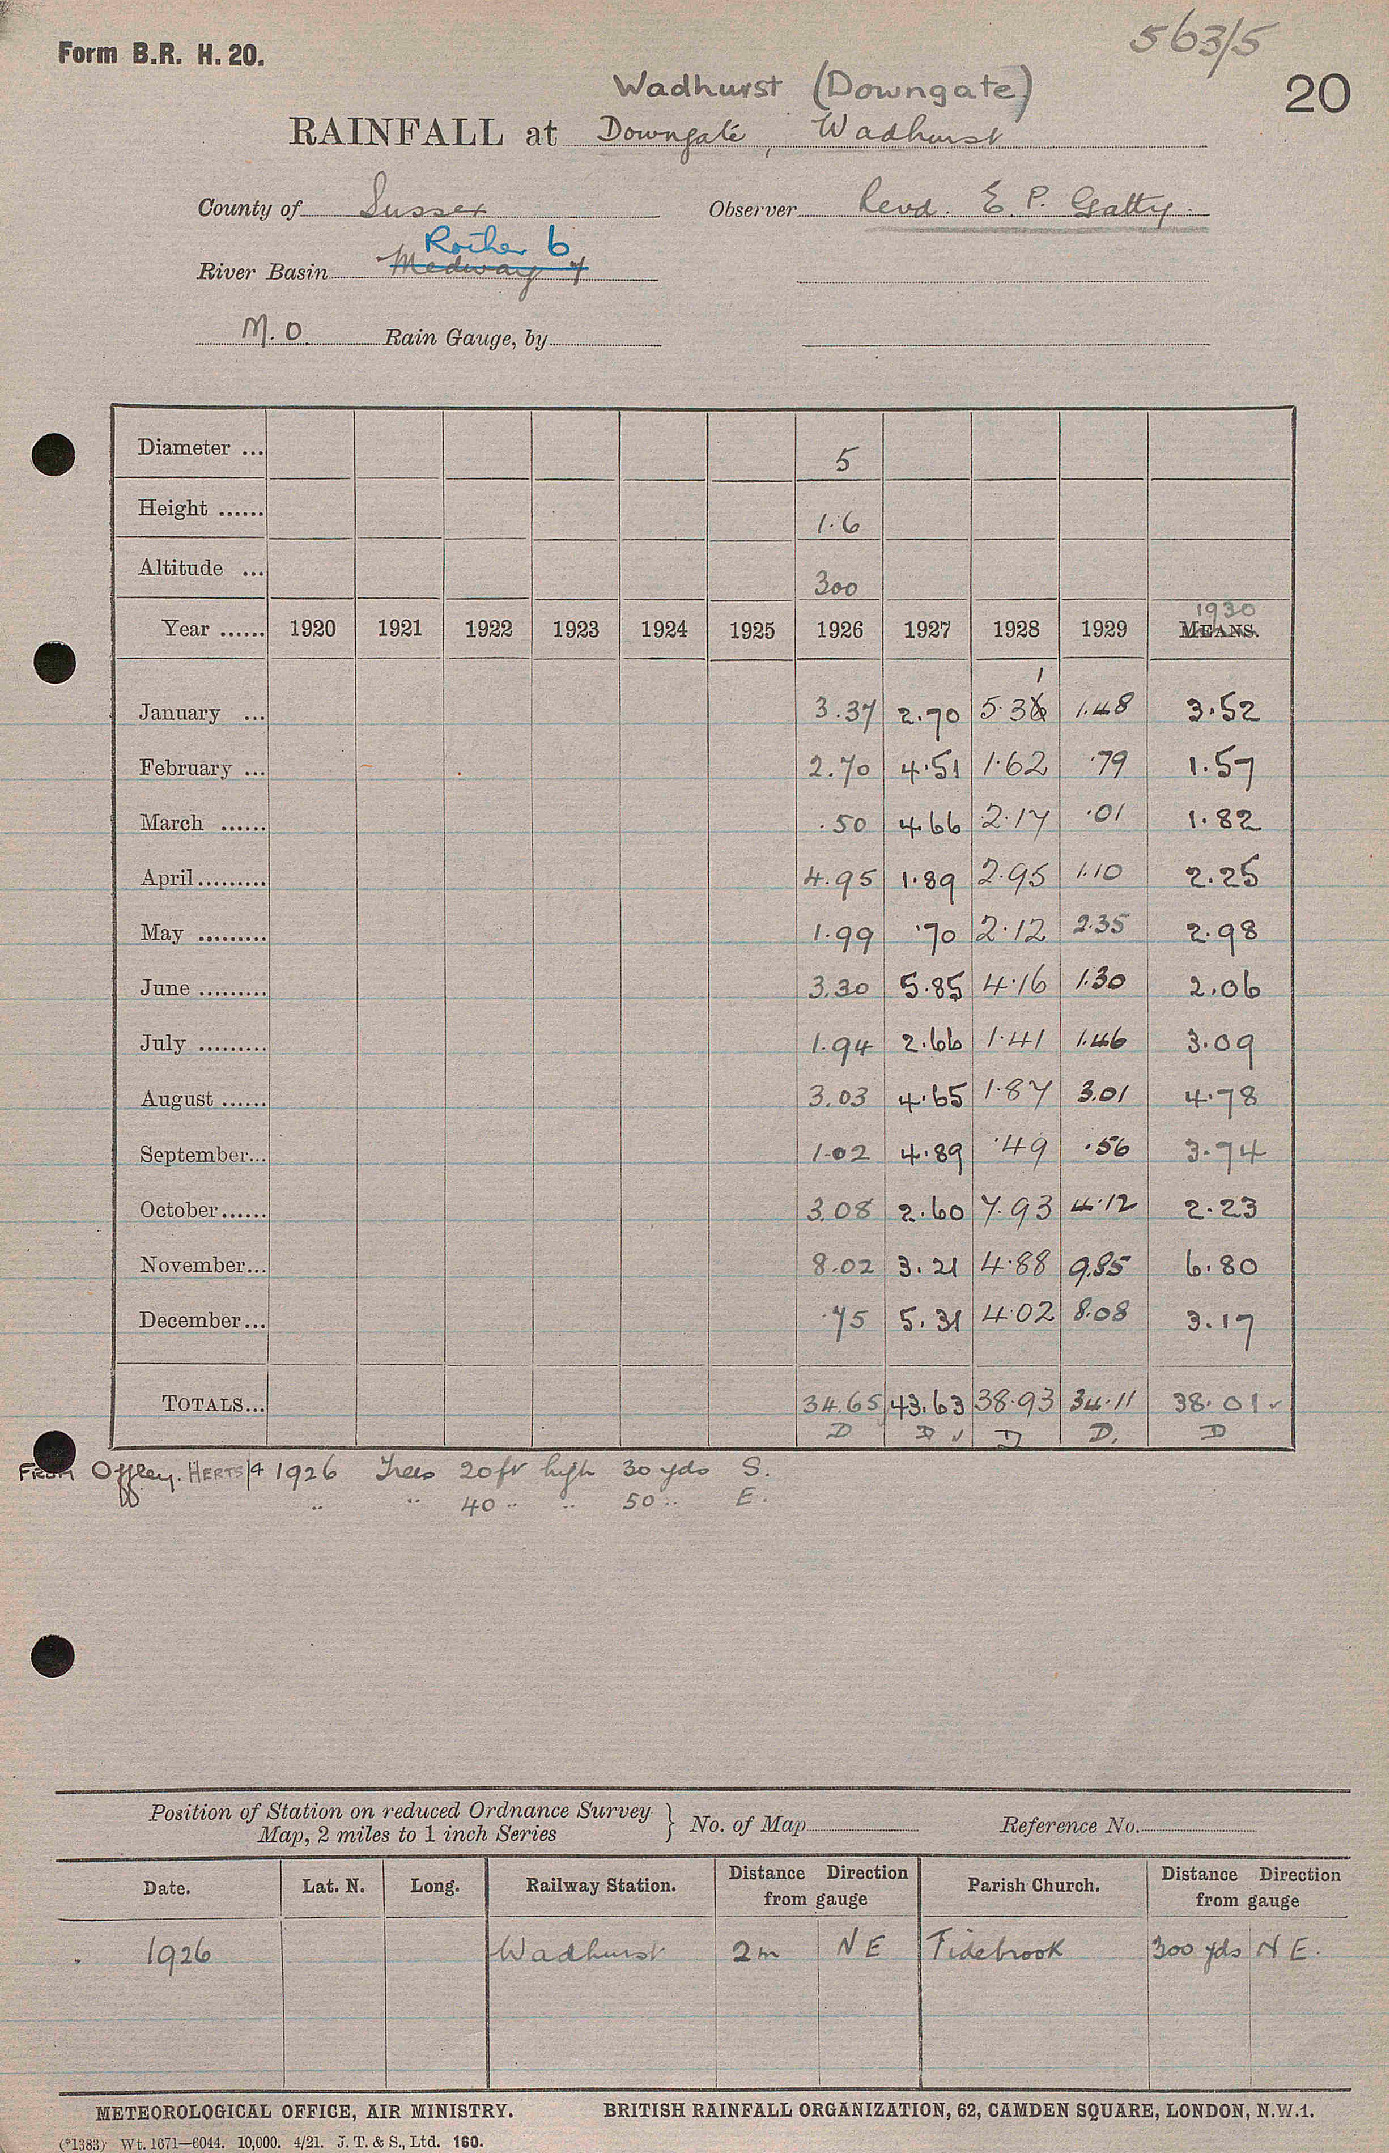 563/5
Form B.R. H. 20.
20
Wadhurst (Downgate)
RAINFALL at Downgate, Wadhurst
County of Sussex Observer Revd. E. P. Gatty.
Rother 6
River Basin Medway 7
M.O. Rain Gauge, by
Diameter ... 5
Height ...... 1.6
Altitude ... 300
1930
Year ...... 1920 1921 1922 1923 1924 1925 1926 1927 1928 1929 MEANS.
1
January ... 3.37 2.70 5.36 1.48 3.52
February ... 2.70 4.51 1.62 .79 1.57
March ...... .50 4.66 2.17 .01 1.82
April......... 4.95 1.89 2.95 1.10 2.25
May ......... 1.99 .70 2.12 2.35 2.98
June ......... 3.30 5.85 4.16 1.30 2.06
July ......... 1.94 2.66 1.41 1.46 3.09
August ...... 3.03 4.65 1.87 3.01 4.78
September... 1.02 4.89 .49 .56 3.74
October...... 3.08 2.60 7.93 4.12 2.23
November... 8.02 3.21 4.88 9.85 6.80
December... .75 5.31 4.02 8.08 3.17
TOTALS... 34.65 43.63 38.93 34.11 38.01 ✓
D D ✓ D D. D
FROM Offley. HERTS/4 1926 Trees 20ft high 30 yds S.
" " 40 " " 50 " E.
Position of Station on reduced Ordnance Survey
Map, 2 miles to 1 inch Series } No. of Map Reference No.
Date. Lat. N. Long. Railway Station. Distance Direction from gauge Parish Church. Distance Direction from gauge
1926 Wadhurst 2m NE Tidebrook 300 yds N E.
METEOROLOGICAL OFFICE, AIR MINISTRY. BRITISH RAINFALL ORGANIZATION, 62, CAMDEN SQUARE, LONDON, N.W.1.
(*1383) Wt. 1671—6044. 10,000. 4/21. J. T. & S., Ltd. 160.